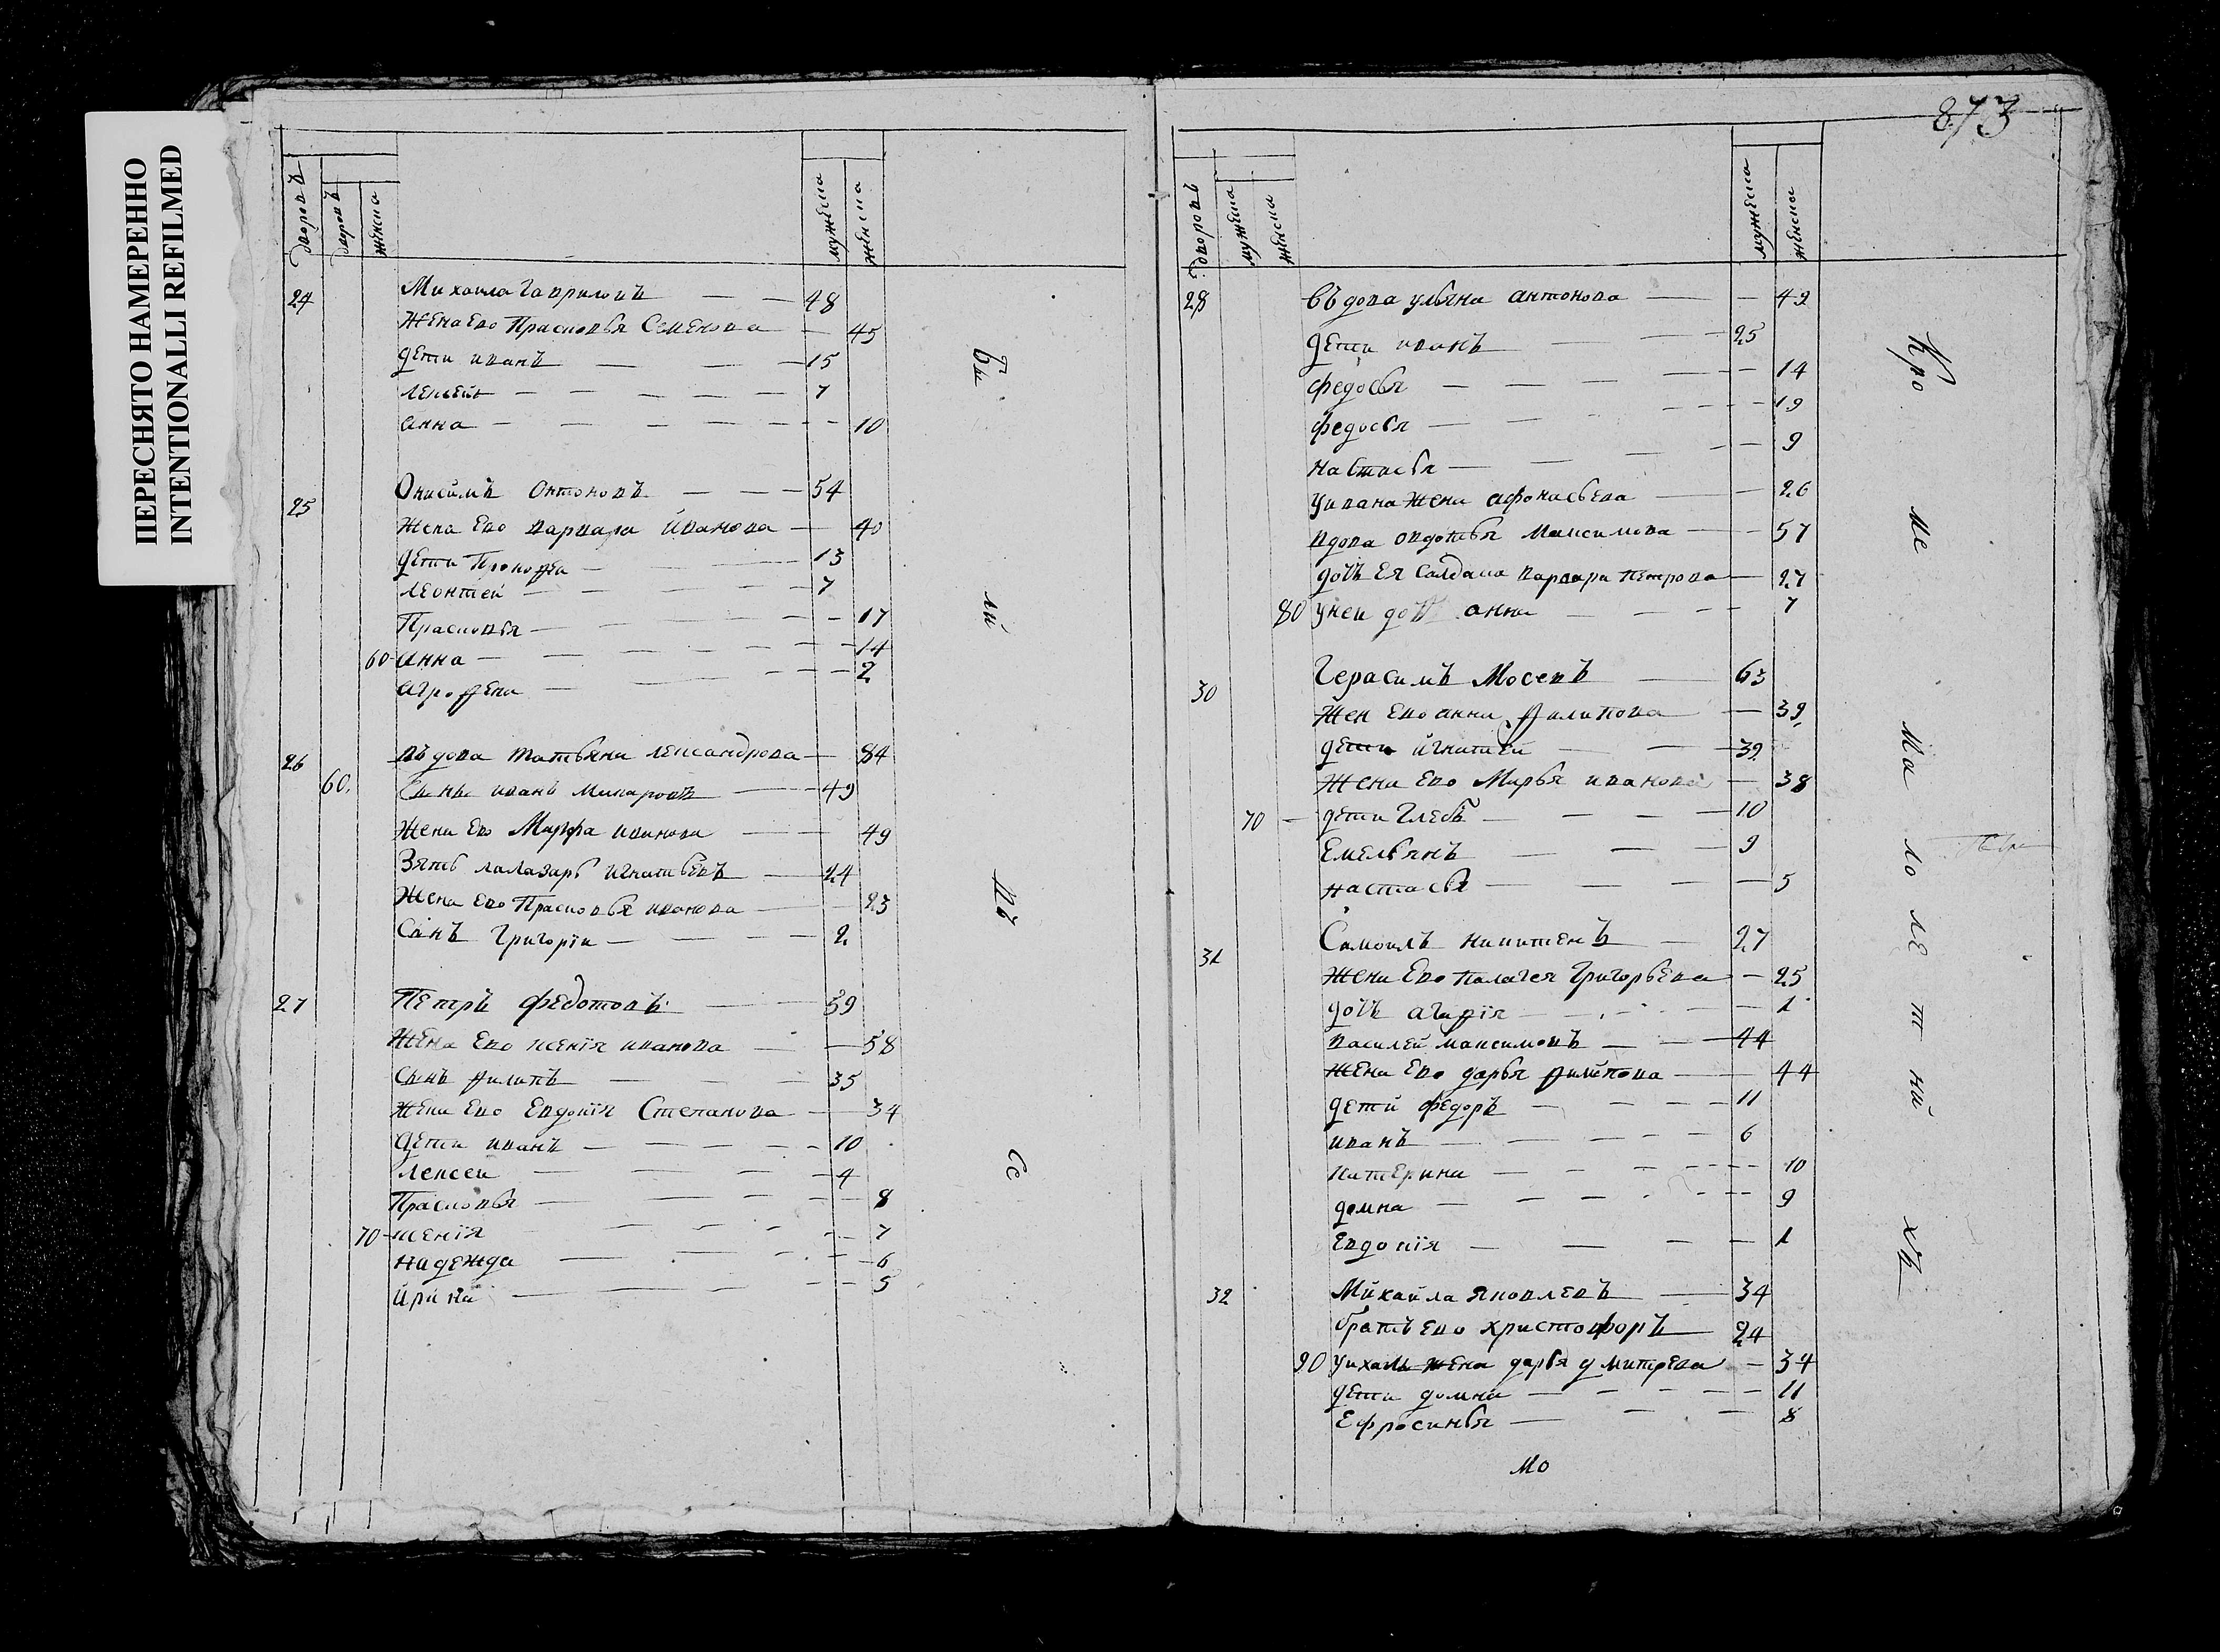 ПЕРЕСНЯТО НАМЕРЕННО
INTENTIONALLI REFILMED
дворовъ
дворовъ
женска
мужеска
женска
24 Михаила Гавриловъ 48
Жена Ево Прасковья Семенова 45
дети иванъ 15
лексей 7
анна 10
25 Онисимъ Онтоновъ 54
Жена Ево варвара иванова 40
дети Прокофеи 13
леонтей 7
Прасковья 17
60 анна 14
агрофена 2
26 въдова татьяна лександрова 84
60. Сынъ иванъ Макаровъ 49
Жена Ево Марфа иванова 49
Зять лалазарь игнатьевъ 24
Жена Ево Прасковья иванова 23
Сынъ Григории 2
27 Петръ федотовъ 59
Жена Ево ксенїя иванова 58
Сынъ филипъ 35
Жена Ево Евдокїя Степанова 34
Дети иванъ 10
лексеи 4
Прасковья 8
70 ксенїя 7
надежда 6
ирина 5
Бы лй въ се
873
дворовъ
мужеска
женска
мужеска
женска
28 въдова ульяна антонова 49
дети иванъ 25
федосья 14
федосья 19
настасья 9
уивана жена афонасьева 26
вдова овдотья Максимова 57
дочь Ея Салдатка варвара Петрова 27
80 унеи дочь анна 7
30 Герасимъ Мосеевъ 63
Жен Ево анна филипова 39
дети игнатей 39
Жена Ево Марья иванова 38
70 дети Глебъ 10
Емельянъ 9
настасья 5
31 Самоилъ никитенъ 27
Жена Ево палагея Григорьева 25
дочь агафїя 1
василей максимовъ 44
Жена Ево дарья филипова 44
дети федоръ 11
иванъ 6
катерина 10
домна 9
Евдокїя 1
32 Михайла яковлевъ 34
братъ ево христофоръ 24
90 ухаилы жена дарья дмитрева 34
дети домна 11
Ефросинья 8
Кро ме ма ло ле т ны хъ
мо